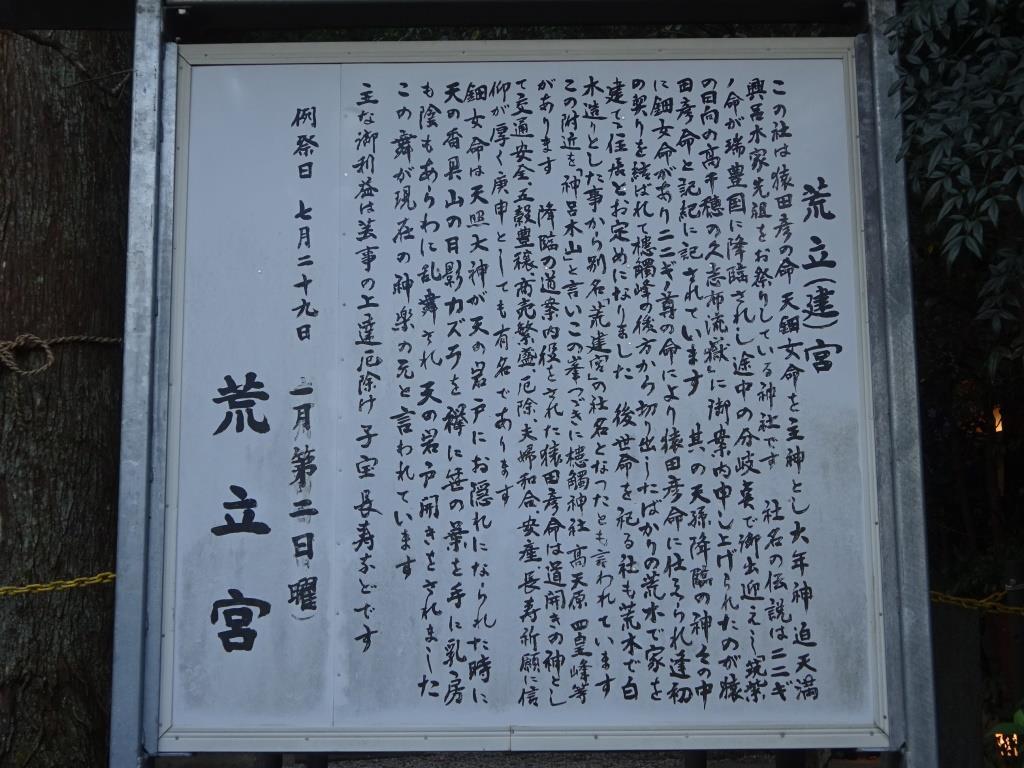 荒立(建)宮
この社は猿田彦の命 天鈿女命を主神とし大年神 迫天満
興呂木家先祖をお祭りしている神社です 社名の伝説はニニギ
ノ命が瑞豊国に降臨されし途中の分岐点で御出迎えし「筑紫
の日向の高千穂の久志布流嶽」に御案内申し上げられたのが猿
田彦命と記紀に記されています 其の天孫降臨の神々の中
に鈿女命がありニニギノ尊の命により猿田彦命に仕えられ逢初
の契りを結ばれて槵觸峰の後方から切り出したばかりの荒木で家を
建て住居とお定めになりました 後世命を祀る社も荒木で白
木造りとした事から別名「荒建宮」の社名となったとも言われています
この附近を「神呂木山」と言いこの峯つづきに槵觸神社 高天原 四皇峰等
があります 降臨の道案内役をされた猿田彦命は道開きの神とし
て交通安全 五穀豊穣、商売繁盛、厄除、夫婦和合、安産、長寿祈願に信
仰が厚く庚申としても有名であります
鈿女命は天照大神が天の岩戸にお隠れになられた時に
天の香具山の日影カズラを襷に笹の葉を手に乳房
も陰もあらわに乱舞され 天の岩戸開きをされました
この舞が現在の神楽の元と言われています
主な御利益は芸事の上達 厄除け 子宝 長寿などです
例祭日 七月二十九日 一月第二日曜)
荒立宮